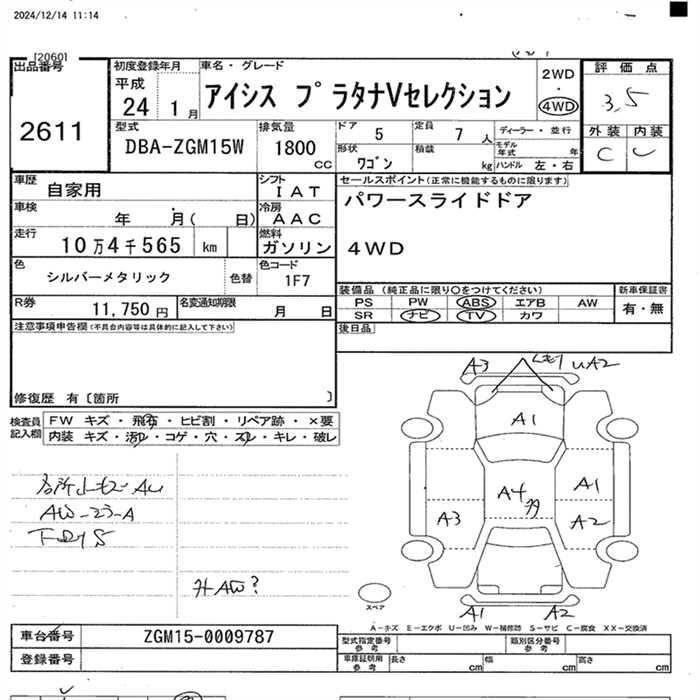 2024/12/14 11:14
[2060]
出品番号
2611
初度登録年月
平成
24 1月
車名・グレード
アイシス プラタナVセレクション
2WD
・
4WD
評価点
3.5
外装 内装
C
型式
DBA-ZGM15W
排気量
1800
cc
ドア 5
定員 7 人
ディーラー・並行
形状
ワゴン
積載
kg
モデル年式 年
ハンドル 左・右
車歴
自家用
シフト
IAT
車検
年 月( 日)
冷房
AAC
走行
10万4千565 km
燃料
ガソリン
色
シルバーメタリック
色替
色コード
1F7
R券
11,750円
名変通知期限
月 日
セールスポイント(正常に機能するものに限ります)
パワースライドドア
4WD
装備品 (純正品に限り〇をつけてください)
PS PW ABS エアB AW
SR ナビ TV カワ
新車保証書
有・無
後日品
注意事項申告欄(不具合内容等は具体的に記入して下さい)
修復歴 有〔箇所 〕
検査員記入欄
FW キズ・飛石・ヒビ割・リペア跡・×要
内装 キズ・汚レ・コゲ・穴・スレ・キレ・破レ
A3
UA2
A1
A4
A1
A3
A2
A1
A2
スペア
A-キズ E-エクボ U-凹み W-補修跡 S-サビ C-腐食 XX-交換済
車台番号
ZGM15-0009787
登録番号
型式指定番号
参考
類別区分番号
参考
車庫証明用
参考
長さ cm
幅 cm
高さ cm